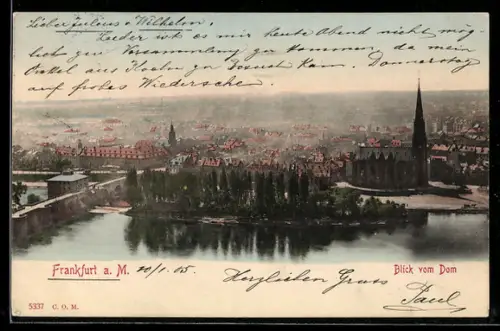 Lieber Julius u. Wilhelm.
Leider ist es mir heute Abend nicht mög-
lich zur Versammlung zu kommen, da mein
Onkel aus Köln zu Besuch kam. Donnerstag
auf frohes Wiedersehn.
Frankfurt a. M. 20/1. 05. Herzlichen Gruss Blick vom Dom
5337 C. O. M. Paul